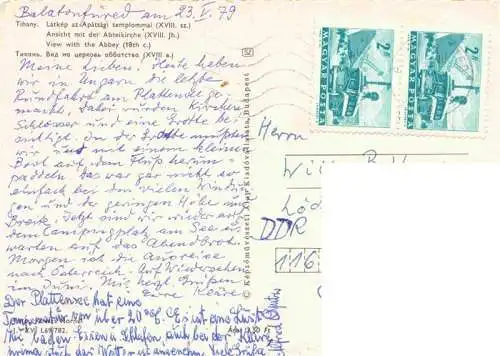 Balatonfüred am 23.V.79
Tihany. Látkép az Apátsági templommal (XVIII. sz.)
Ansicht mit der Abteikirche (XVIII. Jh.)
View with the Abbey (18th c.)
Тихань. Вид на церковь аббатства (XVIII в.)
Meine Lieben. Heute haben
wir in Ungarn die letzte
Rundfahrt am Plattensee ge-
macht, dabei wurden Kirchen
Schlösser und eine Grotte besi-
chtigt, in der Grotte mußten
wir uns mit einem kleinen
Boot auf dem Fluß herum-
paddeln. das war gar nicht so
einfach bei den vielen Windun-
gen und der geringen Höhe und
Breite. Jetzt sind wir wieder auf
dem Campingplatz am See u.
warten auf das Abendbrot.
Morgen ist die Ausreise
nach Österreich. Auf Wiedersehen
im Juni. Mit herzl. Grüßen
Eure
Der Plattensee hat eine
Temperatur von über 20°C. Es ist eine Lust
Wir baden Essen u. Schlafen auch bei der Hitze
prima auch das Wetter ist angenehm Viele Grüße
© Képzőművészeti Alap Kiadóvállalata, Budapest
2 Ft
MAGYAR POSTA
2 Ft
MAGYAR POSTA
Herrn
DDR
116